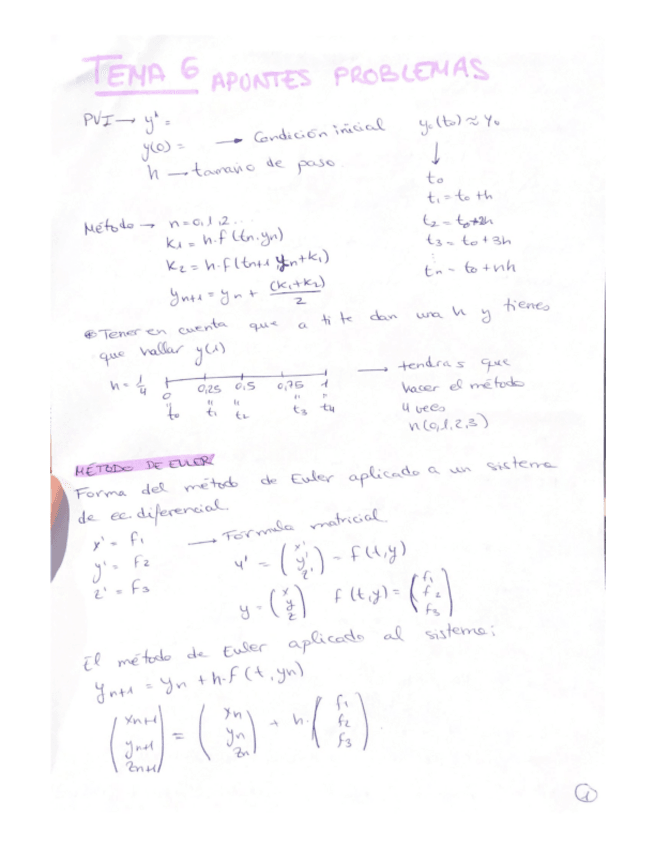 TEMA 6 APONTES PROBLEMAS
PVI → y' =
y(0) = → Condición inicial
h → tamaño de paso.
y₀(t₀) ≈ y₀
↓
t₀
t₁ = t₀ + h
t₂ = t₀+2h
t₃ = t₀ + 3h
⋮
tₙ = t₀ + nh
Método → n=0,1,2...
k₁ = h·f(tₙ,yₙ)
k₂ = h·f(tₙ₊₁ yₙ+k₁)
yₙ₊₁ = yₙ + (k₁+k₂)/2
⊛ Tener en cuenta que a ti te dan una h y tienes
que hallar y(1)
h = 1/4
0 0,25 0,5 0,75 1
t₀ t₁ t₂ t₃ t₄
→ tendras que
hacer el método
4 veces
n(0,1,2,3)
MÉTODO DE EULER
Forma del método de Euler aplicado a un sistema
de ec. diferencial.
x' = f₁
y' = f₂
z' = f₃
→ Fórmula matricial.
y' = (x' y' z') = f(t,y)
y = (x y z) f(t,y) = (f₁ f₂ f₃)
El método de Euler aplicado al sistema:
yₙ₊₁ = yₙ + h·f(t,yₙ)
(xₙ₊₁ yₙ₊₁ zₙ₊₁) = (xₙ yₙ zₙ) + h·(f₁ f₂ f₃)
1